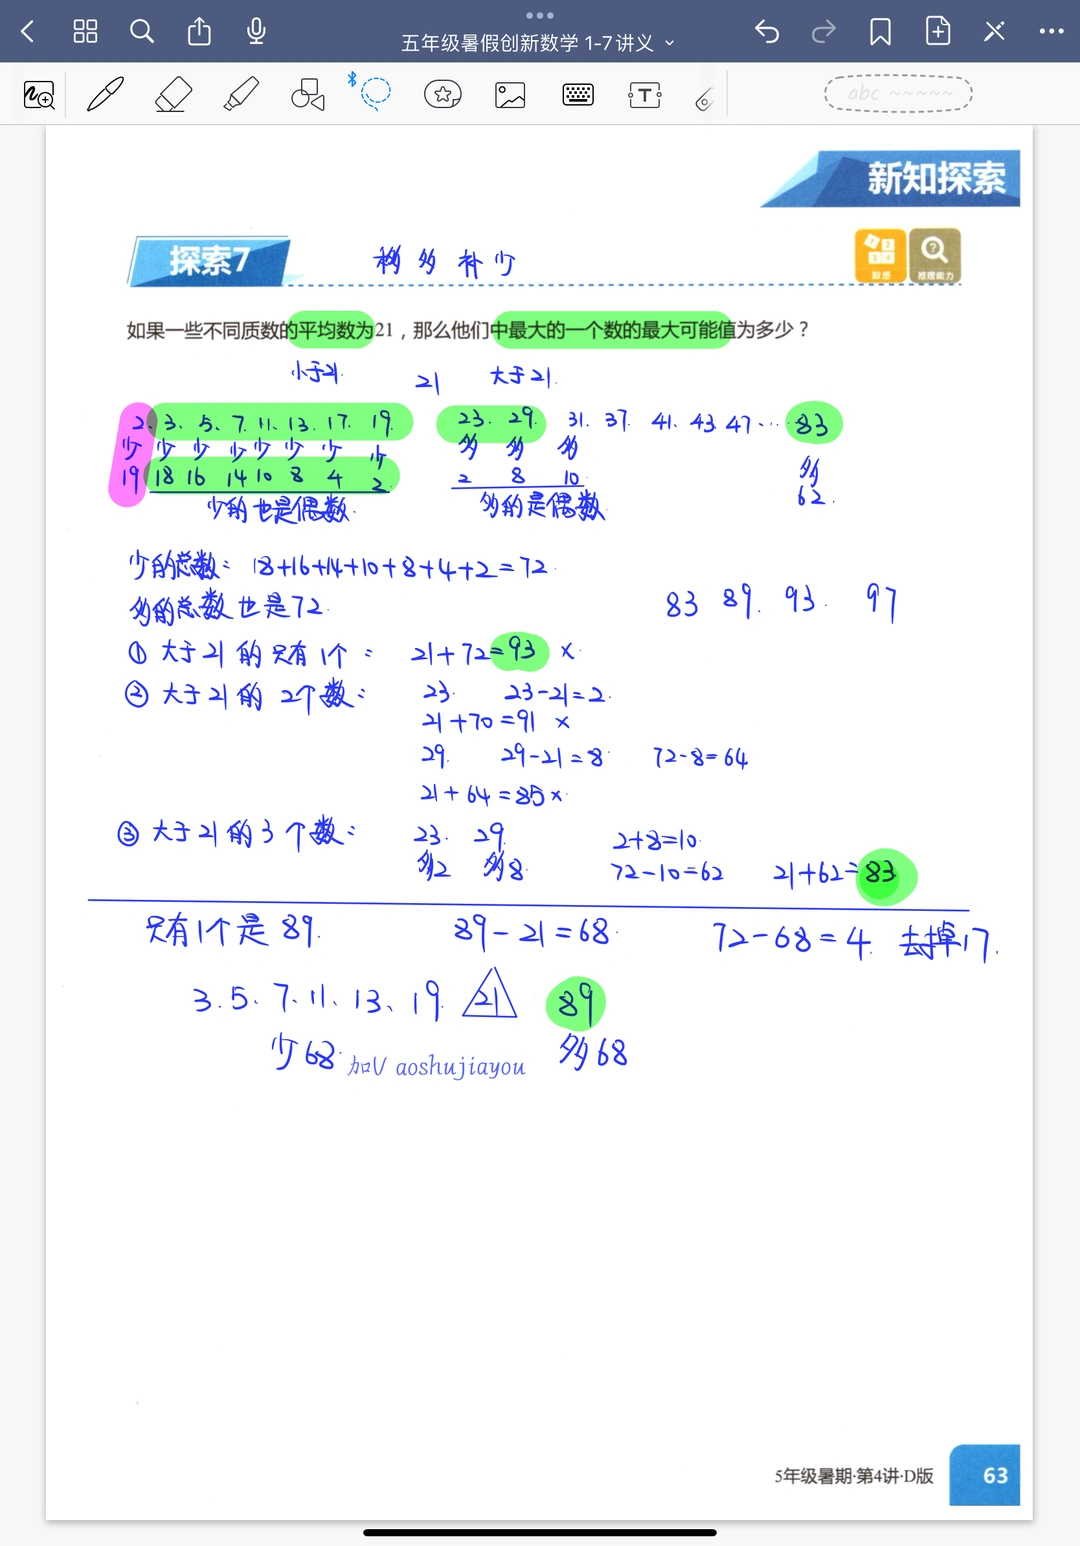 五年级暑假创新数学 1-7讲义
abc ~~~~~
新知探索
探索7
移多补少
数感
推理能力
如果一些不同质数的平均数为21，那么他们中最大的一个数的最大可能值为多少？
小于21 21 大于21.
2、3、5、7、11、13、17、19. 23. 29. 31、37. 41、43、47、… 83
少 少 少 少 少 少 少 少 多 多 多 多
19 18 16 14 10 8 4 2 2 8 10 62.
少的也是偶数. 多的是偶数
少的总数: 18+16+14+10+8+4+2=72.
多的总数也是72.
83 89. 93. 97
① 大于21的只有1个: 21+72=93 ×
② 大于21的 2个数: 23. 23-21=2.
21+70=91 ×
29. 29-21=8 72-8=64
21+64=85×
③ 大于21的3个数: 23. 29. 2+8=10.
多2 多8. 72-10=62 21+62=83
只有1个是 89. 89-21=68. 72-68=4. 去掉17.
3. 5、7、11、13、19. 21 89
少68. 加V aoshujiayou 多68
5年级暑期·第4讲·D版 63